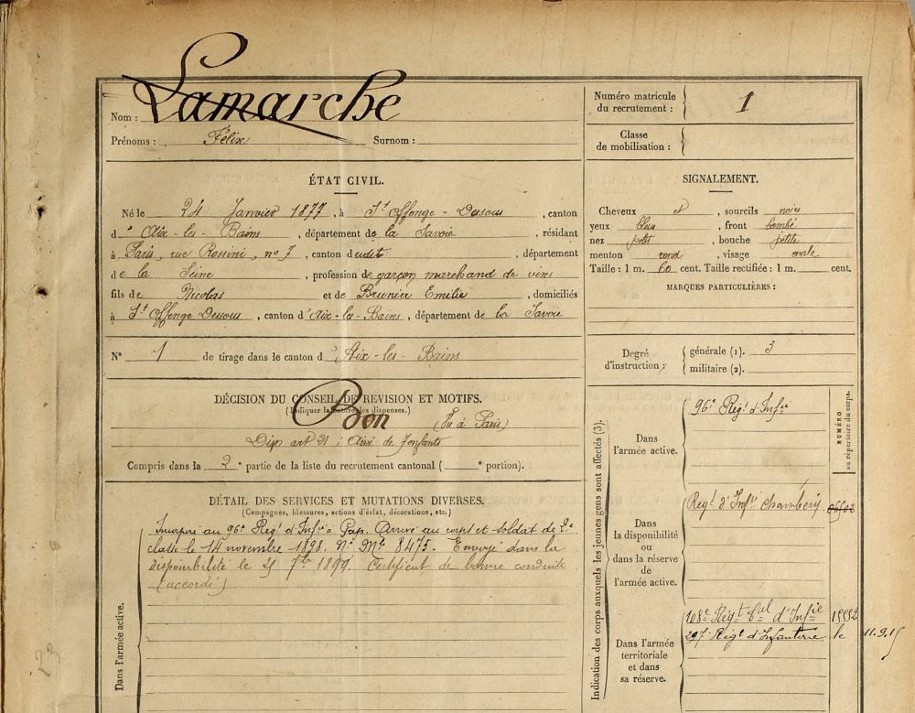 Nom : Lamarche
Prénoms : Félix Surnom :
Numéro matricule
du recrutement : 1
Classe
de mobilisation :
ÉTAT CIVIL.
Né le 24 Janvier 1877, à St Offenge-Dessous, canton
d'Aix-les-Bains, département de la Savoie, résidant
à Paris, rue Rossini, no 7, canton dudit, département
de la Seine, profession de garçon marchand de vins
fils de Nicolas et de Brunier Emilie, domiciliés
à St Offenge Dessous, canton d'Aix-les-Bains, département de la Savoie
SIGNALEMENT.
Cheveux dt, sourcils noirs
yeux bleus, front bombé
nez petit, bouche petite
menton rond, visage ovale
Taille : 1 m. 60 cent. Taille rectifiée : 1 m. cent.
MARQUES PARTICULIÈRES :
No 1 de tirage dans le canton d'Aix-les-Bains
Degré
d'instruction :
générale (1). 3
militaire (2).
DÉCISION DU CONSEIL DE REVISION ET MOTIFS.
(Indiquer la nature des dispenses.)
Bon (Vu à Paris)
Disp art 21 : Aîné de 7 enfants
Compris dans la 2e partie de la liste du recrutement cantonal ( e portion).
DÉTAIL DES SERVICES ET MUTATIONS DIVERSES.
(Campagnes, blessures, actions d'éclat, décorations, etc.)
Dans l'armée active.
Incorporé au 96e Regt d'Infie à Gap. Arrivé au corps et soldat de 2e
classe le 14 novembre 1898. No Mle 8475. Envoyé dans la
disponibilité le 7bre 1899. Certificat de bonne conduite
(accordé)
Indication des corps auxquels les jeunes gens sont affectés (3).
NUMÉRO
au répertoire du corps.
Dans
l'armée active.
96e Regt d'Infie
Dans
la disponibilité
ou
dans la réserve
de
l'armée active.
Regt d'Infie Chambéry
Dans l'armée
territoriale
et dans
sa réserve.
108e Régt tal d'Infie
297e Régt d'Infanterie le 11.9.15
23